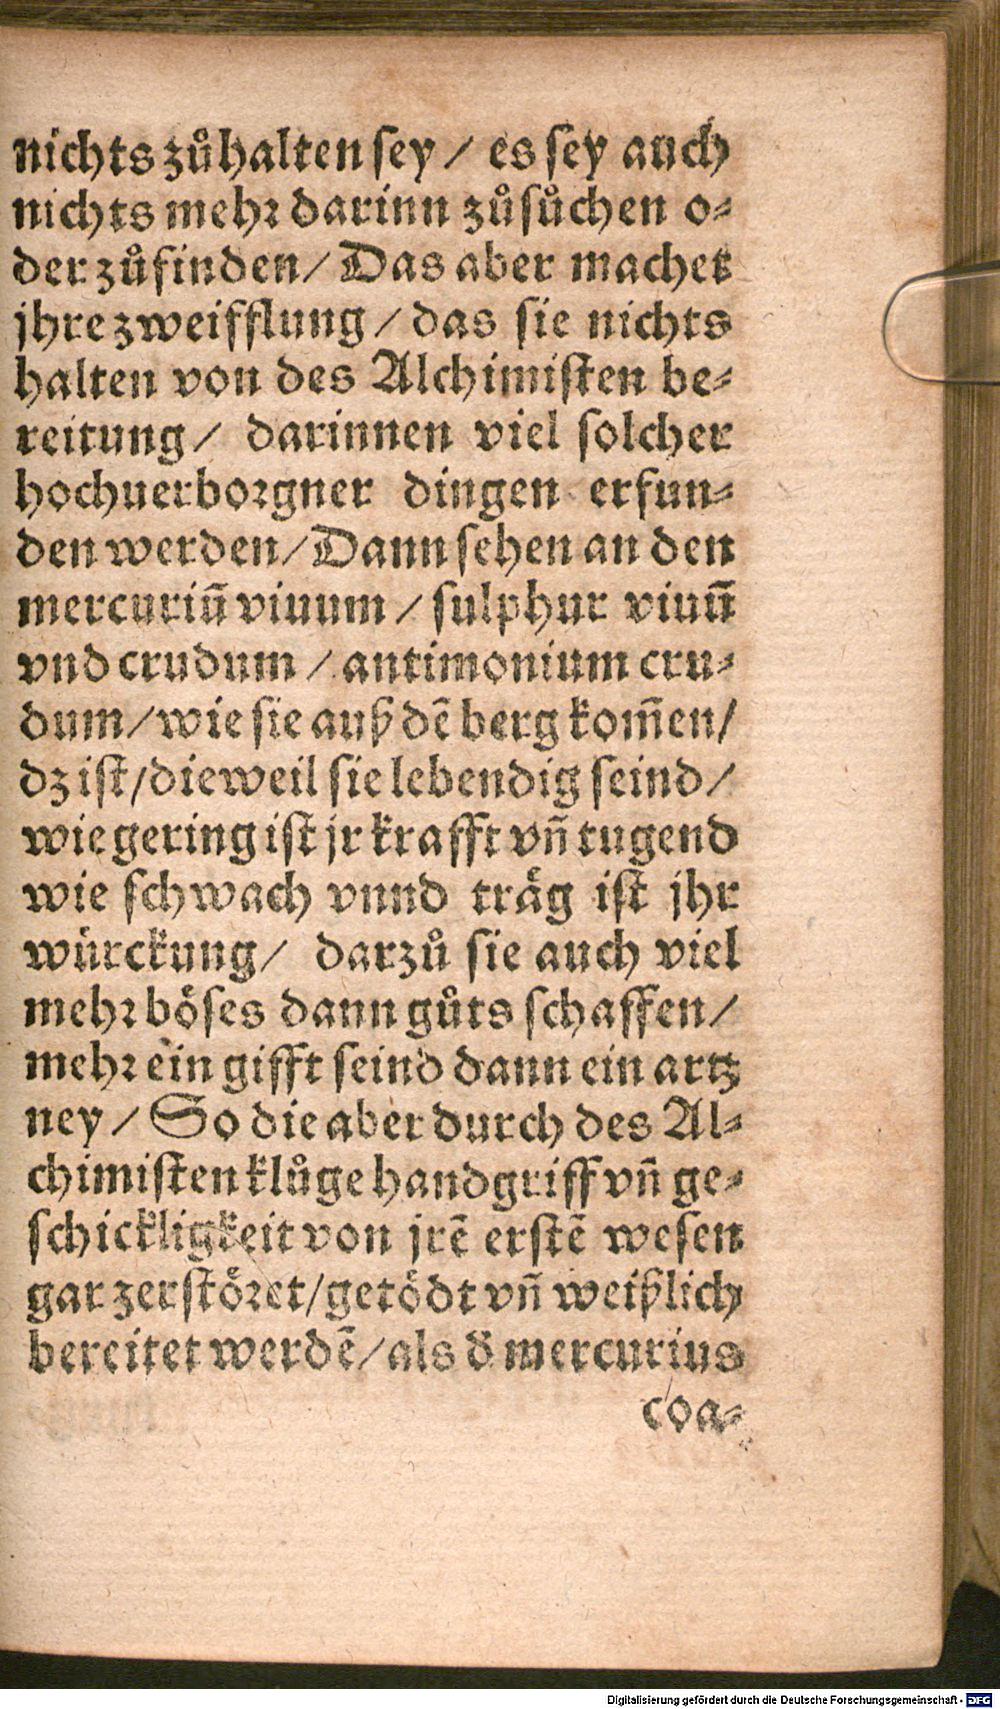 nichts zůhalten sey / es sey auch
nichts mehr darinn zůsůchen o⸗
der zůfinden / Das aber machet
jhre zweifflung / das sie nichts
halten von des Alchimisten be⸗
reitung / darinnen viel solcher
hochuerborgner dingen erfun⸗
den werden / Dann sehen an den
mercuriū viuum / sulphur viuū
vnd crudum / antimonium cru⸗
dum / wie sie auß dē berg kom̄en /
dz ist / dieweil sie lebendig seind /
wie gering ist jr krafft vn̄ tugend
wie schwach vnnd träg ist jhr
würckung / darzů sie auch viel
mehr böses dann gůts schaffen /
mehr ein gifft seind dann ein artz
ney / So die aber durch des Al⸗
chimisten klůge handgriff vn̄ ge⸗
schickligkeit von jrē erstē wesen
gar zerstöret / getödt vn̄ weißlich
bereitet werdē / als d̄ mercurius
coa⸗
Digitalisierung gefördert durch die Deutsche Forschungsgemeinschaft - DFG